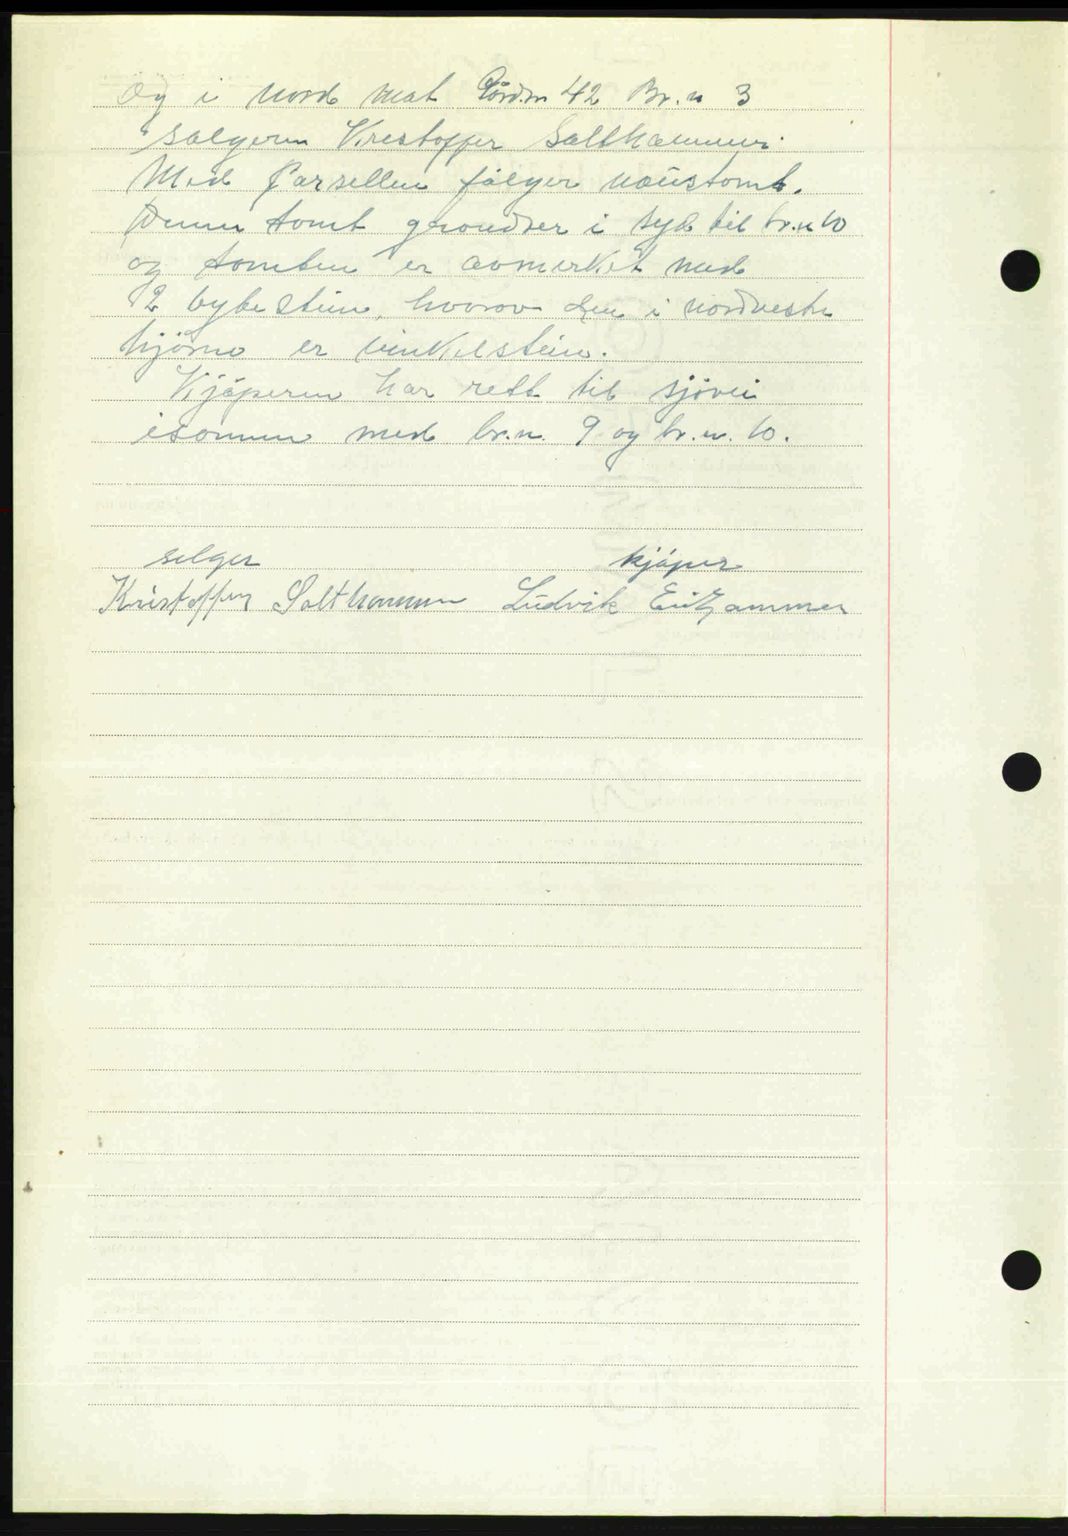 Og i nord mot Gårdn 42 Br.n 3
sælgeren Kristoffer Salthammer.
Med Parsellen følger naustomt.
Denne tomt grendser i syd til br.n 10
og tomten er avmerket med
2 bytesteiner, hvorav den i nordvestre
hjørne er vinkelstein.
Kjøperen har rett til sjøvei
isammen med br.n. 9 og br.n. 10.
selger kjøper
Kristoffer Salthammer Ludvik